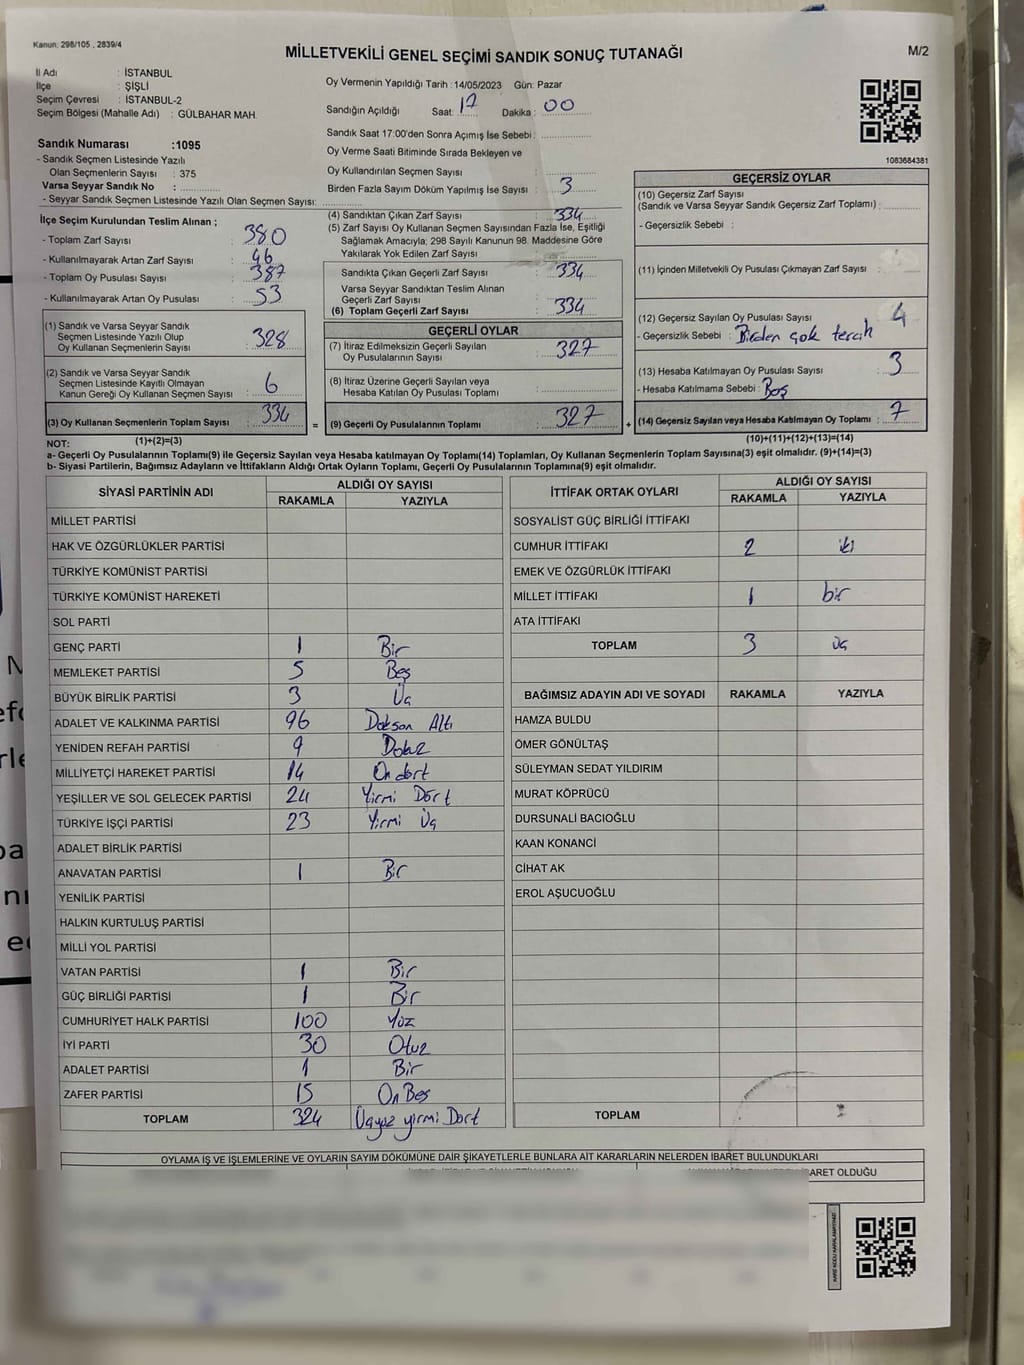 Kanun: 298/105 , 2839/4
MİLLETVEKİLİ GENEL SEÇİMİ SANDIK SONUÇ TUTANAĞI
M/2
İl Adı : İSTANBUL
İlçe : ŞİŞLİ
Seçim Çevresi : İSTANBUL-2
Seçim Bölgesi (Mahalle Adı) : GÜLBAHAR MAH.
Oy Vermenin Yapıldığı Tarih : 14/05/2023 Gün: Pazar
Sandığın Açıldığı Saat: 17 Dakika : 00
Sandık Saat 17:00'den Sonra Açımış İse Sebebi :
Oy Verme Saati Bitiminde Sırada Bekleyen ve
Oy Kullandırılan Seçmen Sayısı :
Birden Fazla Sayım Döküm Yapılmış İse Sayısı : 3
1083684381
Sandık Numarası :1095
- Sandık Seçmen Listesinde Yazılı
Olan Seçmenlerin Sayısı : 375
Varsa Seyyar Sandık No :
- Seyyar Sandık Seçmen Listesinde Yazılı Olan Seçmen Sayısı:
İlçe Seçim Kurulundan Teslim Alınan ;
- Toplam Zarf Sayısı : 380
- Kullanılmayarak Artan Zarf Sayısı : 46
- Toplam Oy Pusulası Sayısı : 387
- Kullanılmayarak Artan Oy Pusulası : 53
(1) Sandık ve Varsa Seyyar Sandık
Seçmen Listesinde Yazılı Olup
Oy Kullanan Seçmenlerin Sayısı : 328
(2) Sandık ve Varsa Seyyar Sandık
Seçmen Listesinde Kayıtlı Olmayan
Kanun Gereği Oy Kullanan Seçmen Sayısı : 6
(3) Oy Kullanan Seçmenlerin Toplam Sayısı : 334
(4) Sandıktan Çıkan Zarf Sayısı : 334
(5) Zarf Sayısı Oy Kullanan Seçmen Sayısından Fazla İse, Eşitliği
Sağlamak Amacıyla; 298 Sayılı Kanunun 98. Maddesine Göre
Yakılarak Yok Edilen Zarf Sayısı :
Sandıkta Çıkan Geçerli Zarf Sayısı : 334
Varsa Seyyar Sandıktan Teslim Alınan
Geçerli Zarf Sayısı :
(6) Toplam Geçerli Zarf Sayısı : 334
GEÇERLİ OYLAR
(7) İtiraz Edilmeksizin Geçerli Sayılan
Oy Pusulalarının Sayısı : 327
(8) İtiraz Üzerine Geçerli Sayılan veya
Hesaba Katılan Oy Pusulası Toplamı :
= (9) Geçerli Oy Pusulalarının Toplamı : 327
GEÇERSİZ OYLAR
(10) Geçersiz Zarf Sayısı
(Sandık ve Varsa Seyyar Sandık Geçersiz Zarf Toplamı) :
- Geçersizlik Sebebi :
(11) İçinden Milletvekili Oy Pusulası Çıkmayan Zarf Sayısı :
(12) Geçersiz Sayılan Oy Pusulası Sayısı : 4
- Geçersizlik Sebebi : Birden çok tercih
(13) Hesaba Katılmayan Oy Pusulası Sayısı : 3
- Hesaba Katılmama Sebebi : Boş
+ (14) Geçersiz Sayılan veya Hesaba Katılmayan Oy Toplamı : 7
NOT: (1)+(2)=(3) (10)+(11)+(12)+(13)=(14)
a- Geçerli Oy Pusulalarının Toplamı(9) ile Geçersiz Sayılan veya Hesaba katılmayan Oy Toplamı(14) Toplamları, Oy Kullanan Seçmenlerin Toplam Sayısına(3) eşit olmalıdır. (9)+(14)=(3)
b- Siyasi Partilerin, Bağımsız Adayların ve İttifakların Aldığı Ortak Oyların Toplamı, Geçerli Oy Pusulalarının Toplamına(9) eşit olmalıdır.
SİYASİ PARTİNİN ADI ALDIĞI OY SAYISI
RAKAMLA YAZIYLA
MİLLET PARTİSİ
HAK VE ÖZGÜRLÜKLER PARTİSİ
TÜRKİYE KOMÜNİST PARTİSİ
TÜRKİYE KOMÜNİST HAREKETİ
SOL PARTİ
GENÇ PARTİ 1 Bir
MEMLEKET PARTİSİ 5 Beş
BÜYÜK BİRLİK PARTİSİ 3 Üç
ADALET VE KALKINMA PARTİSİ 96 Doksan Altı
YENİDEN REFAH PARTİSİ 9 Dokuz
MİLLİYETÇİ HAREKET PARTİSİ 14 On dört
YEŞİLLER VE SOL GELECEK PARTİSİ 24 Yirmi Dört
TÜRKİYE İŞÇİ PARTİSİ 23 Yirmi Üç
ADALET BİRLİK PARTİSİ
ANAVATAN PARTİSİ 1 Bir
YENİLİK PARTİSİ
HALKIN KURTULUŞ PARTİSİ
MİLLİ YOL PARTİSİ
VATAN PARTİSİ 1 Bir
GÜÇ BİRLİĞİ PARTİSİ 1 Bir
CUMHURİYET HALK PARTİSİ 100 Yüz
İYİ PARTİ 30 Otuz
ADALET PARTİSİ 1 Bir
ZAFER PARTİSİ 15 On Beş
TOPLAM 324 Üçyüz yirmi Dört
İTTİFAK ORTAK OYLARI ALDIĞI OY SAYISI
RAKAMLA YAZIYLA
SOSYALİST GÜÇ BİRLİĞİ İTTİFAKI
CUMHUR İTTİFAKI 2 iki
EMEK VE ÖZGÜRLÜK İTTİFAKI
MİLLET İTTİFAKI 1 bir
ATA İTTİFAKI
TOPLAM 3 üç
BAĞIMSIZ ADAYIN ADI VE SOYADI RAKAMLA YAZIYLA
HAMZA BULDU
ÖMER GÖNÜLTAŞ
SÜLEYMAN SEDAT YILDIRIM
MURAT KÖPRÜCÜ
DURSUNALİ BACIOĞLU
KAAN KONANCİ
CİHAT AK
EROL AŞUCUOĞLU
TOPLAM
OYLAMA İŞ VE İŞLEMLERİNE VE OYLARIN SAYIM DÖKÜMÜNE DAİR ŞİKAYETLERLE BUNLARA AİT KARARLARIN NELERDEN İBARET BULUNDUKLARI
İBARET OLDUĞU